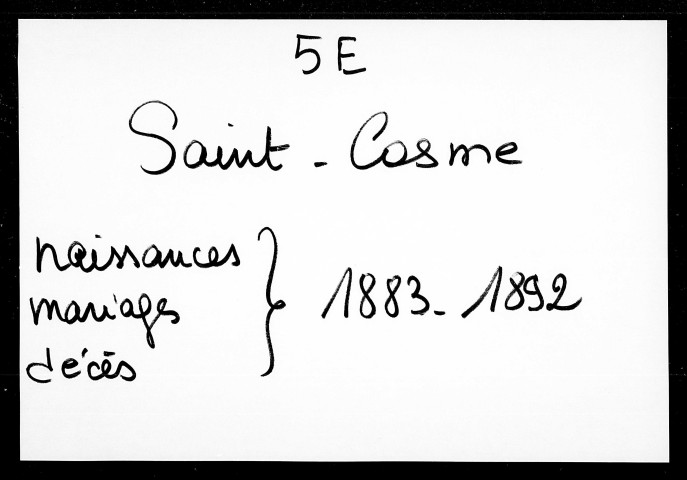 5 E
Saint-Cosme
naissances
mariages
décès
1883-1892